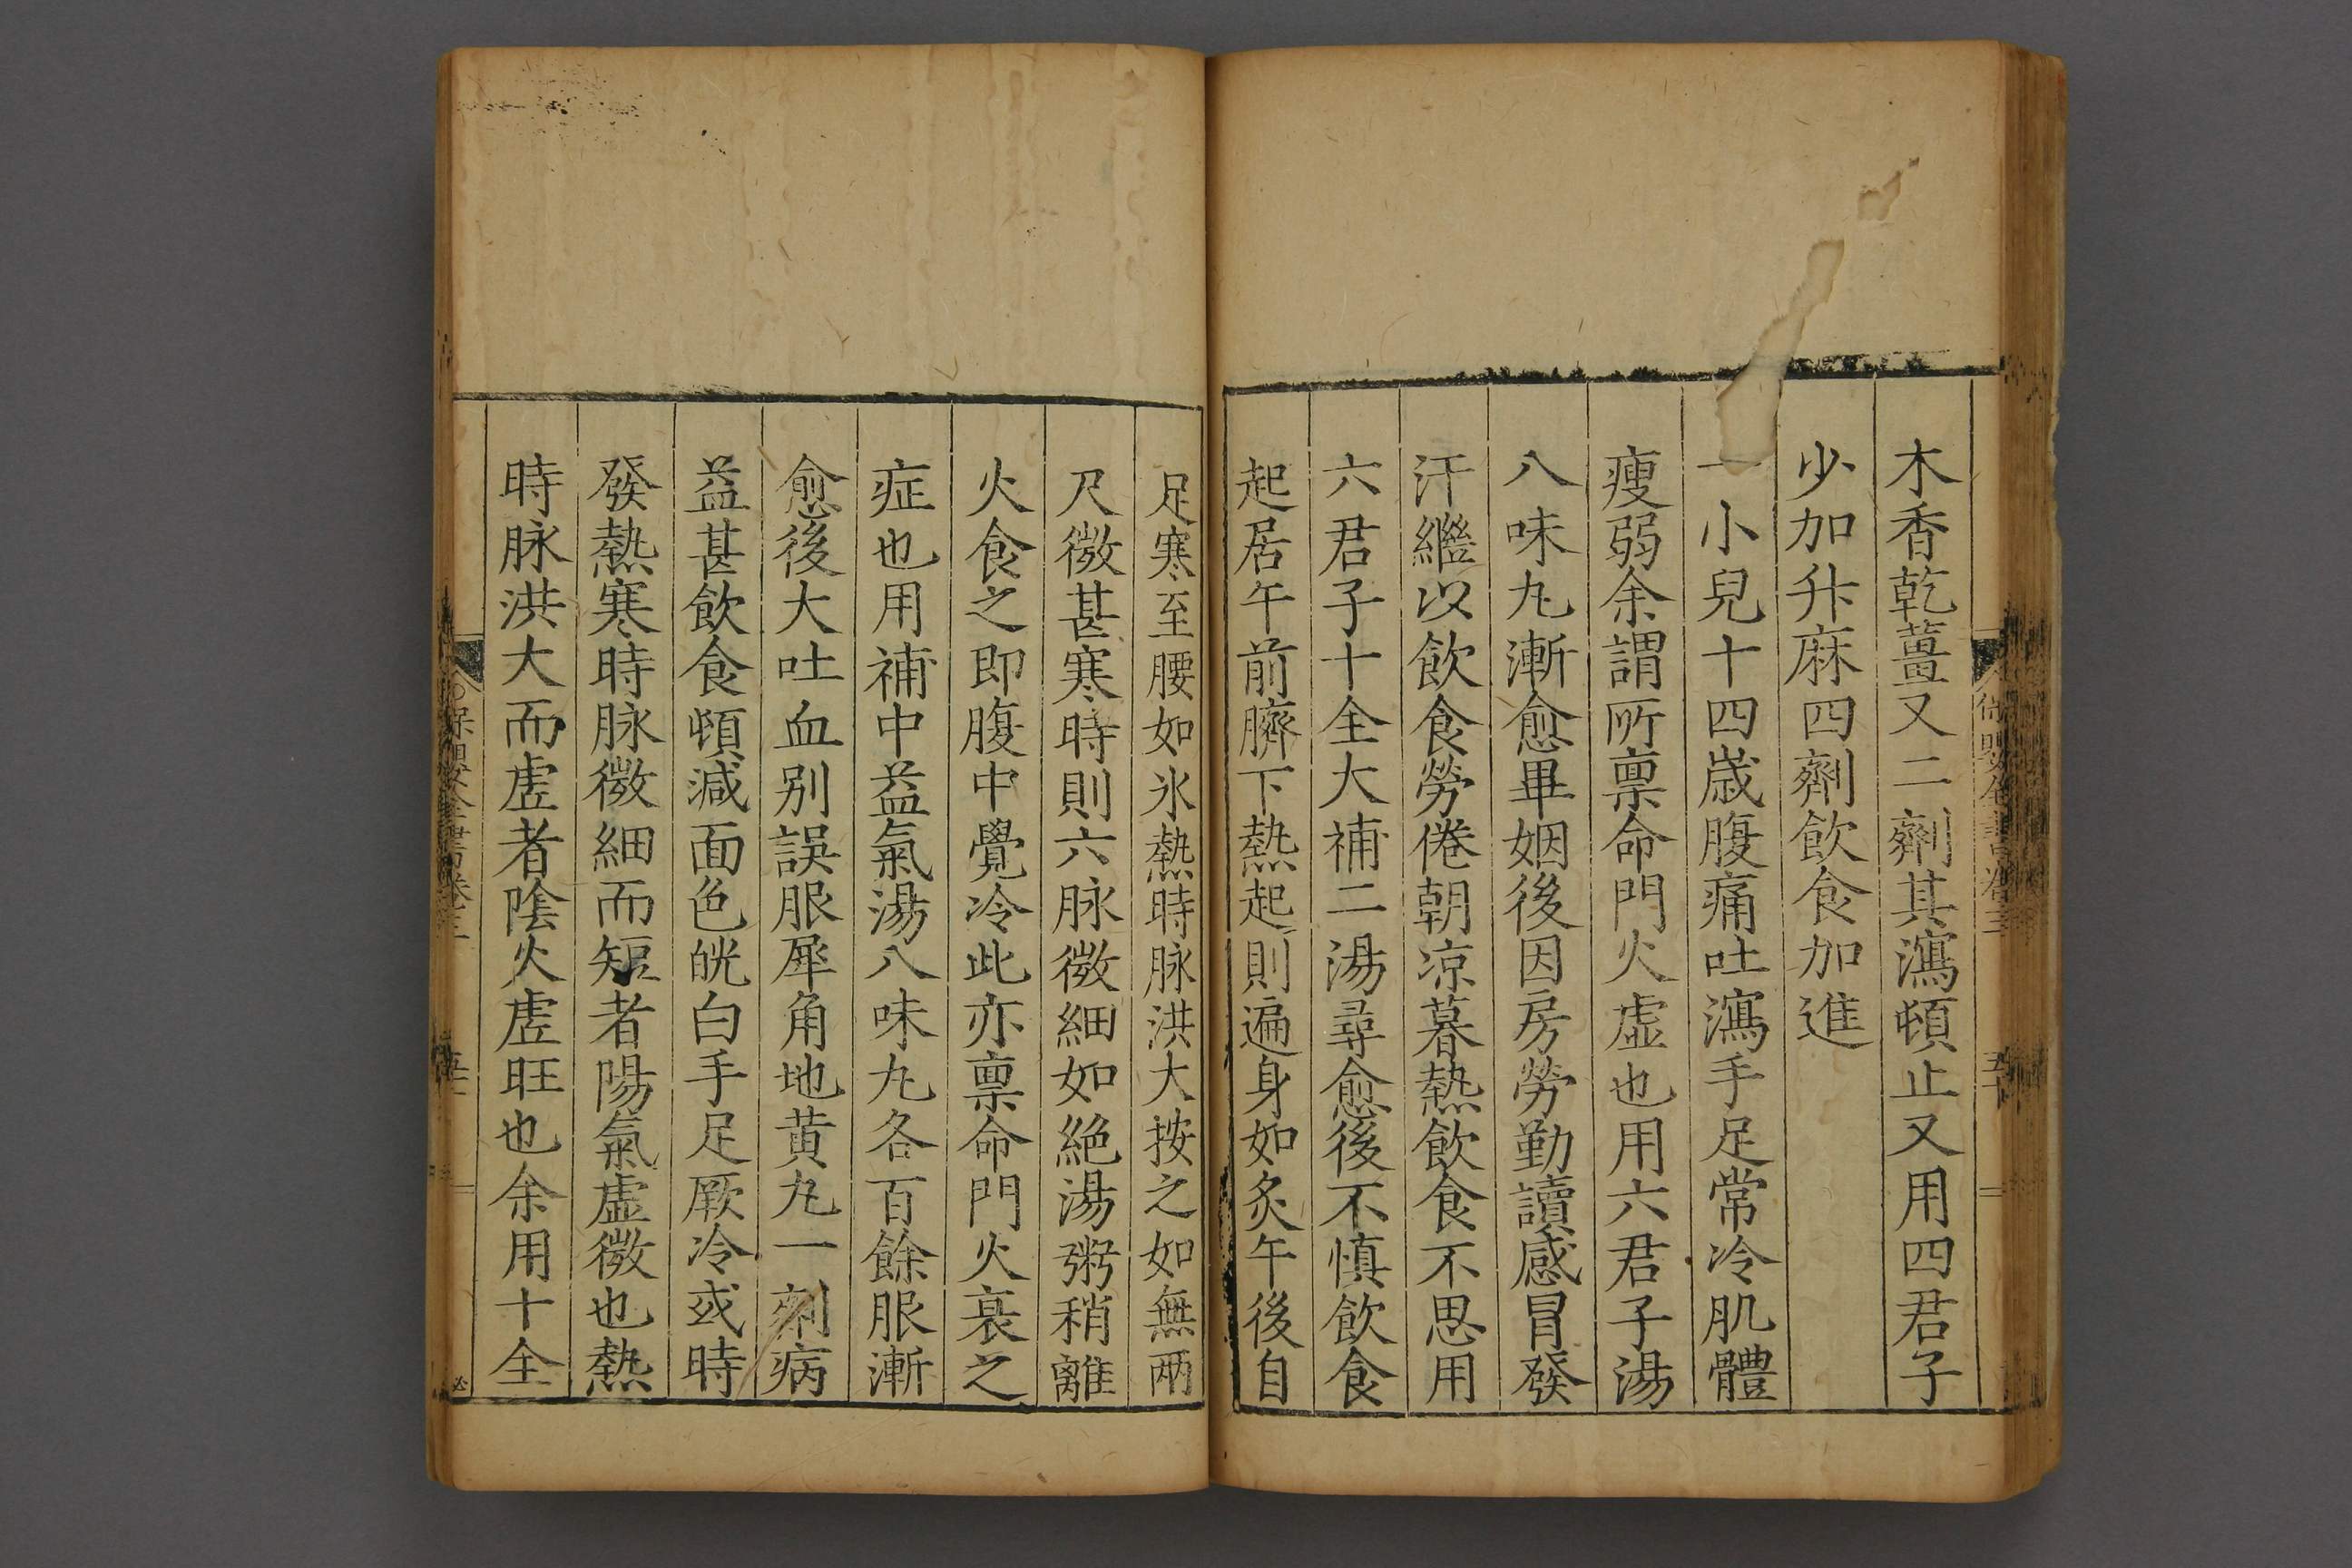 木香乾薑又二劑其瀉頓止又用四君子
少加升麻四劑飲食加進
一小兒十四歲腹痛吐瀉手足常冷肌體
瘦弱余謂所禀命門火虛也用六君子湯
八味丸漸愈畢姻後因房勞勤讀感冒發
汗繼以飲食勞倦朝凉暮熱飲食不思用
六君子十全大補二湯尋愈後不慎飲食
起居午前臍下熱起則遍身如炙午後自
足寒至腰如氷熱時脉洪大按之如無兩
尺微甚寒時則六脉微細如絶湯粥稍離
火食之即腹中覺冷此亦禀命門火衰之
症也用補中益氣湯八味丸各百餘服漸
愈後大吐血别誤服犀角地黄丸一劑病
益甚飲食頓減面色㿠白手足厥冷或時
發熱寒時脉微細而短者陽氣虛微也熱
時脉洪大而虛者陰火虛旺也余用十全